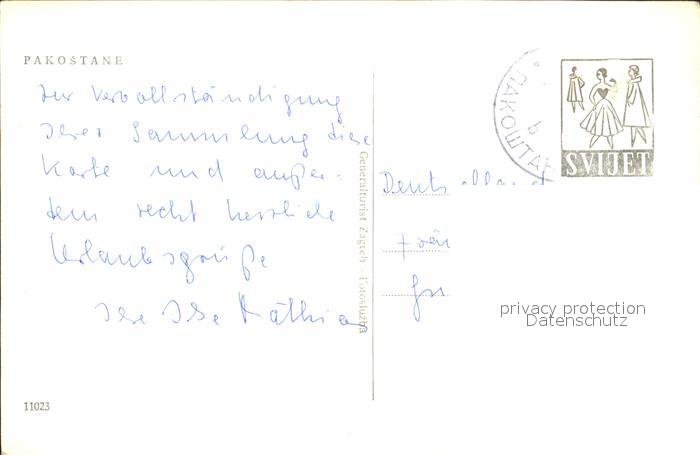 PAKOŠTANE
Zur Vervollständigung
Ihrer Sammlung diese
Karte und außer-
dem recht herzliche
Urlaubsgrüße
Ihre Ilse Mathias
Generalturist Zagreb - Fotoslužba
11023
ПАКОШТАН
SVIJET
Deutschland
Fräu
privacy protection
Datenschutz